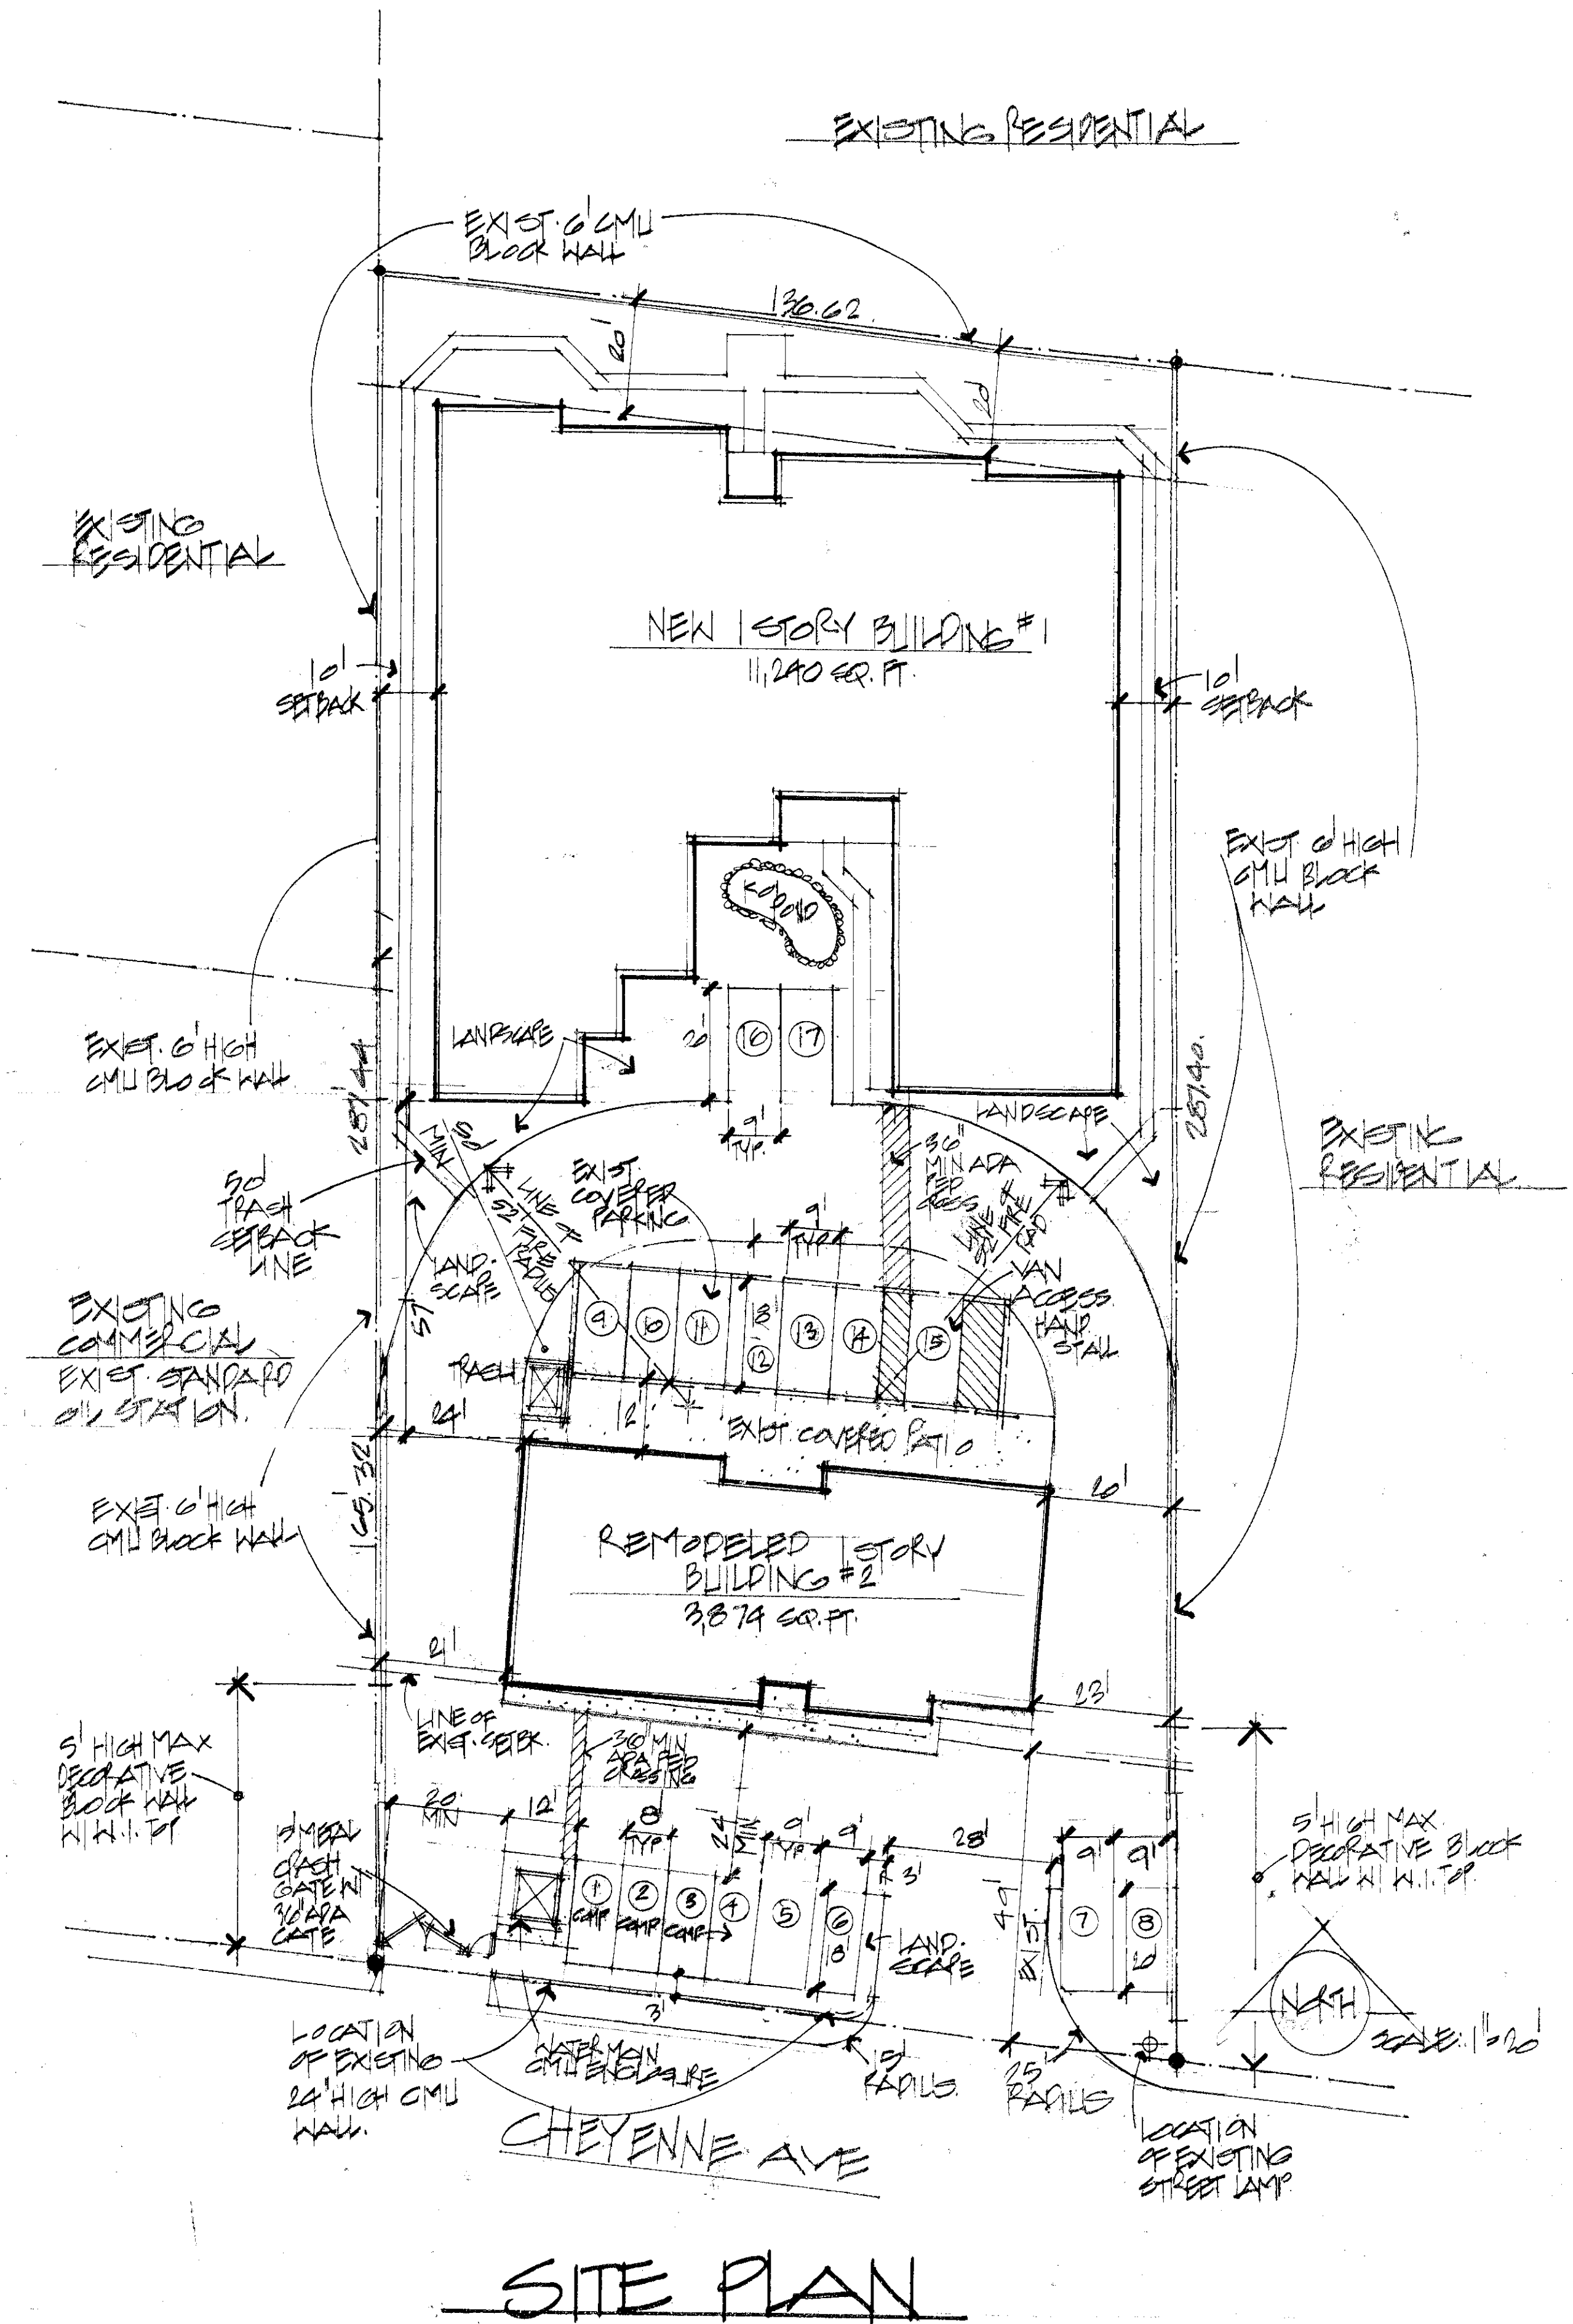 EXISTING RESIDENTIAL
EXIST. 6' CMU
BLOCK WALL
136.62
20'
20'
EXISTING
RESIDENTIAL
NEW 1 STORY BUILDING #1
11,240 SQ. FT.
10'
SETBACK
10'
SETBACK
EXIST. 6' HIGH
CMU BLOCK
WALL
KOI POND
LANDSCAPE
20'
16
17
EXIST. 6' HIGH
CMU BLOCK WALL
287.44
287.40.
LANDSCAPE
9'
TYP.
EXISTING
RESIDENTIAL
50'
MIN
50'
TRASH
SETBACK
LINE
LINE OF
52' FIRE
RADIUS
EXIST.
COVERED
PARKING
36"
MIN ADA
PED
ACCESS
LINE OF
52' FIRE
RAD
9'
TYP.
LAND-
SCAPE
57'
VAN
ACCESS.
HAND.
STALL
EXISTING
COMMERCIAL
EXIST. STANDARD
OIL STATION.
9
10
11
18'
12
13
14
15
TRASH
24'
12'
EXIST. COVERED PATIO
165.32
20'
EXIST. 6' HIGH
CMU BLOCK WALL
REMODELED 1 STORY
BUILDING #2
3,874 SQ. FT.
21'
23'
LINE OF
EXIST. SETBK.
36" MIN
ADA PED
CROSSING
5' HIGH MAX
DECORATIVE
BLOCK WALL
W/ W.I. TOP
20
MIN
12'
8'
TYP
24'
MIN
9'
TYP
9'
28'
3'
9'
9'
5' HIGH MAX.
DECORATIVE BLOCK
WALL W/ W.I. TOP.
METAL
CRASH
GATE W/
36" ADA
GATE
1
COMP
2
COMP
3
COMP
4
5
6
18'
LAND-
SCAPE
EXIST.
7
8
20'
3'
NORTH
SCALE: 1"=20'
LOCATION
OF EXISTING
24" HIGH CMU
WALL.
WATER MAIN
CMU ENCLOSURE
15'
RADIUS.
25'
RADIUS
LOCATION
OF EXISTING
STREET LAMP.
CHEYENNE AVE
SITE PLAN